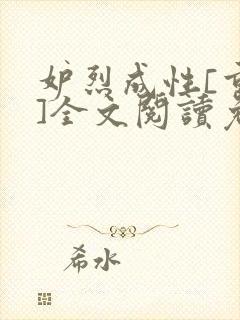 妒烈成性[
]全文閱讀
希水